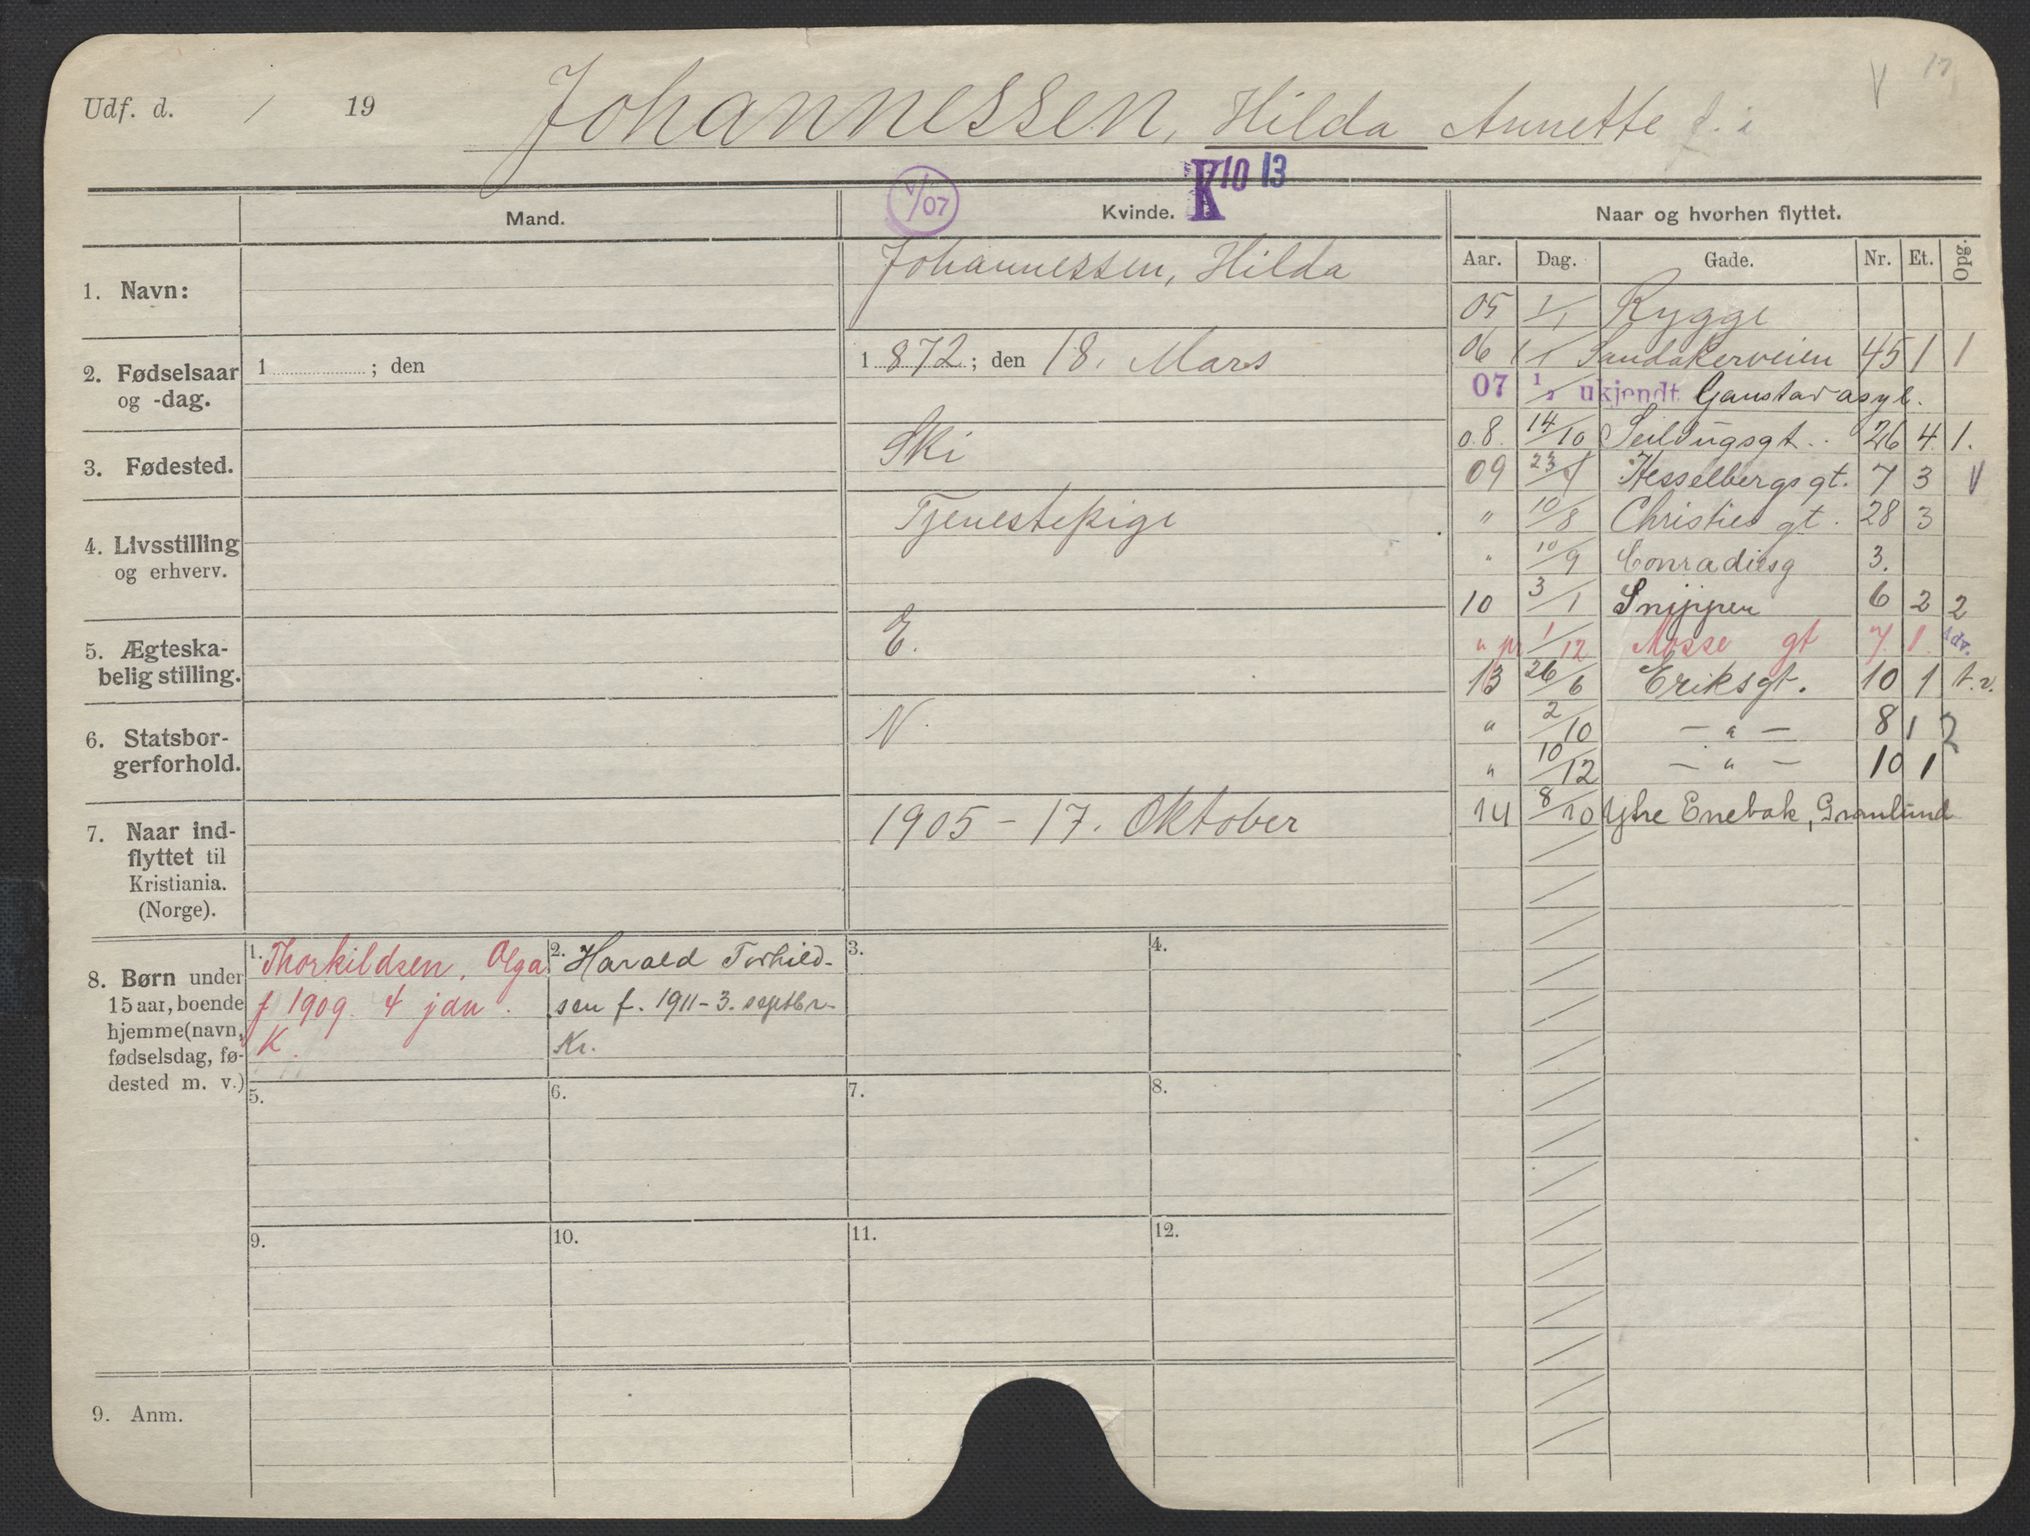 Udf. d. / 19
Johannessen, Hilda Annette f. i
K 10 13
V/07
Mand.
Kvinde.
Naar og hvorhen flyttet.
Aar. Dag. Gade. Nr. Et. Opg.
1. Navn:
Johannessen, Hilda
2. Fødselsaar
og -dag.
1 ; den
1 872 ; den 18. Mars
3. Fødested.
Ski
4. Livsstilling
og erhverv.
Tjenestepige
5. Ægteska-
belig stilling.
E.
6. Statsbor-
gerforhold.
N
7. Naar ind-
flyttet til
Kristiania.
(Norge).
1905 – 17. Oktober
05 1/1 Rygge
06 1/1 Sandakerveien 45 1 1
07 ukjendt Gaustad asyl.
08. 14/10 Seildugsgt. 26 4 1.
09 Hesselbergs gt. 7 3 V
" 10/8 Christies gt. 28 3
" 10/9 Conradiesg 3.
10 3/1 Snippen 6 2 2
" pr 1/12 Mosse gt 7. 1. Adv.
13 26/6 Eriksgt. 10 1 t.v.
" 2/10 — " — 8 1 2
" 10/12 — " — 10 1
14 8/10 Ytre Enebak, Granlund
8. Børn under
15 aar, boende
hjemme (navn,
fødselsdag, fø-
dested m. v.)
1. Thorkildsen, Olga
f 1909. 4 jan.
K.
2. Harald Torkild-
sen f. 1911 – 3. septbr.
Kr.
3.
4.
5.
6.
7.
8.
9.
10.
11.
12.
9. Anm.